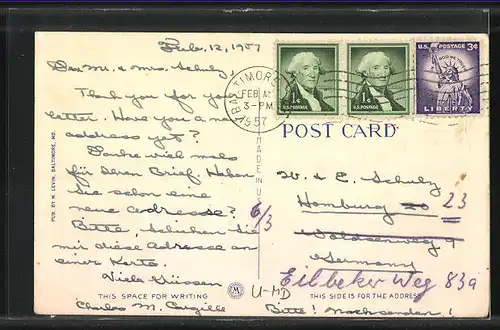 Feb. 12, 1957
Dear Mr. & Mrs. Schulz,
Thank you for your
letter. Have you a new
address yet?
Danke viel mals
für Ihren Brief. Haben
Sie schon eine
neue Adresse?
Bitte, schicken Sie
mir diese Adresse an
einer Karte.
Viele Grüssen
Charles M. Cargille
THIS SPACE FOR WRITING
PUB. BY M. LEVIN, BALTIMORE, MD.
MADE IN U.S.A.
6/3
U-MD
BALTIMORE
FEB 12
3-PM
1957
1¢
U.S. POSTAGE
1¢
U.S. POSTAGE
U.S. POSTAGE 3¢
IN GOD WE TRUST
LIBERTY
POST CARD
W. & E. Schulz
Hamburg 20 23
Waldsenweg 9
Germany
Eilbeker Weg 83a
THIS SIDE IS FOR THE ADDRESS
Bitte! Nachsenden!